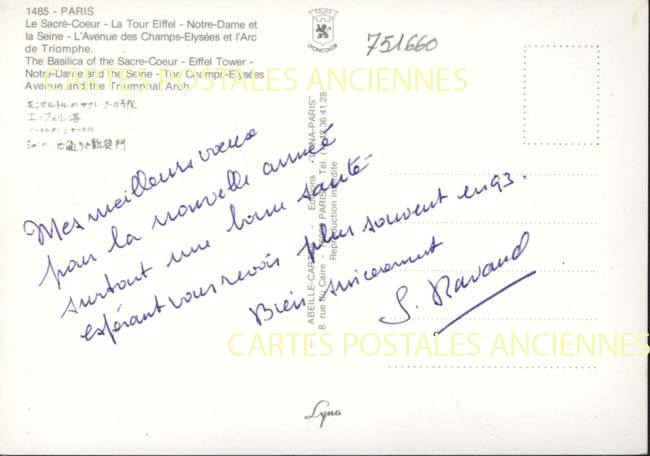 1485 - PARIS
Le Sacré-Coeur - La Tour Eiffel - Notre-Dame et
la Seine - L'Avenue des Champs-Elysées et l'Arc
de Triomphe.
The Basilica of the Sacre-Coeur - Eiffel Tower -
Notre-Dame and the Seine - The Champs-Elysées
Avenue and the Triumphal Arch.
エッフェル塔
751660
CARTES POSTALES ANCIENNES
Mes meilleurs vœux
pour la nouvelle année
surtout une bonne santé
espérant vous revoir plus souvent en 93.
Bien sincèrement
ABEILLE-CARTES - Editions "LYNA-PARIS"
8, rue du Caire - PARIS Tél. 42.36.41.28
Reproduction interdite
CARTES POSTALES ANCIENNES
Lyna